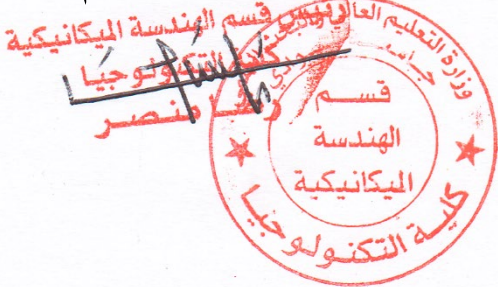 رئيس قسم الهندسة الميكانيكية
كلية التكنولوجيا
رضا منصر
وزارة التعليم العالي
قسم
الهندسة
الميكانيكية
كلية التكنولوجيا